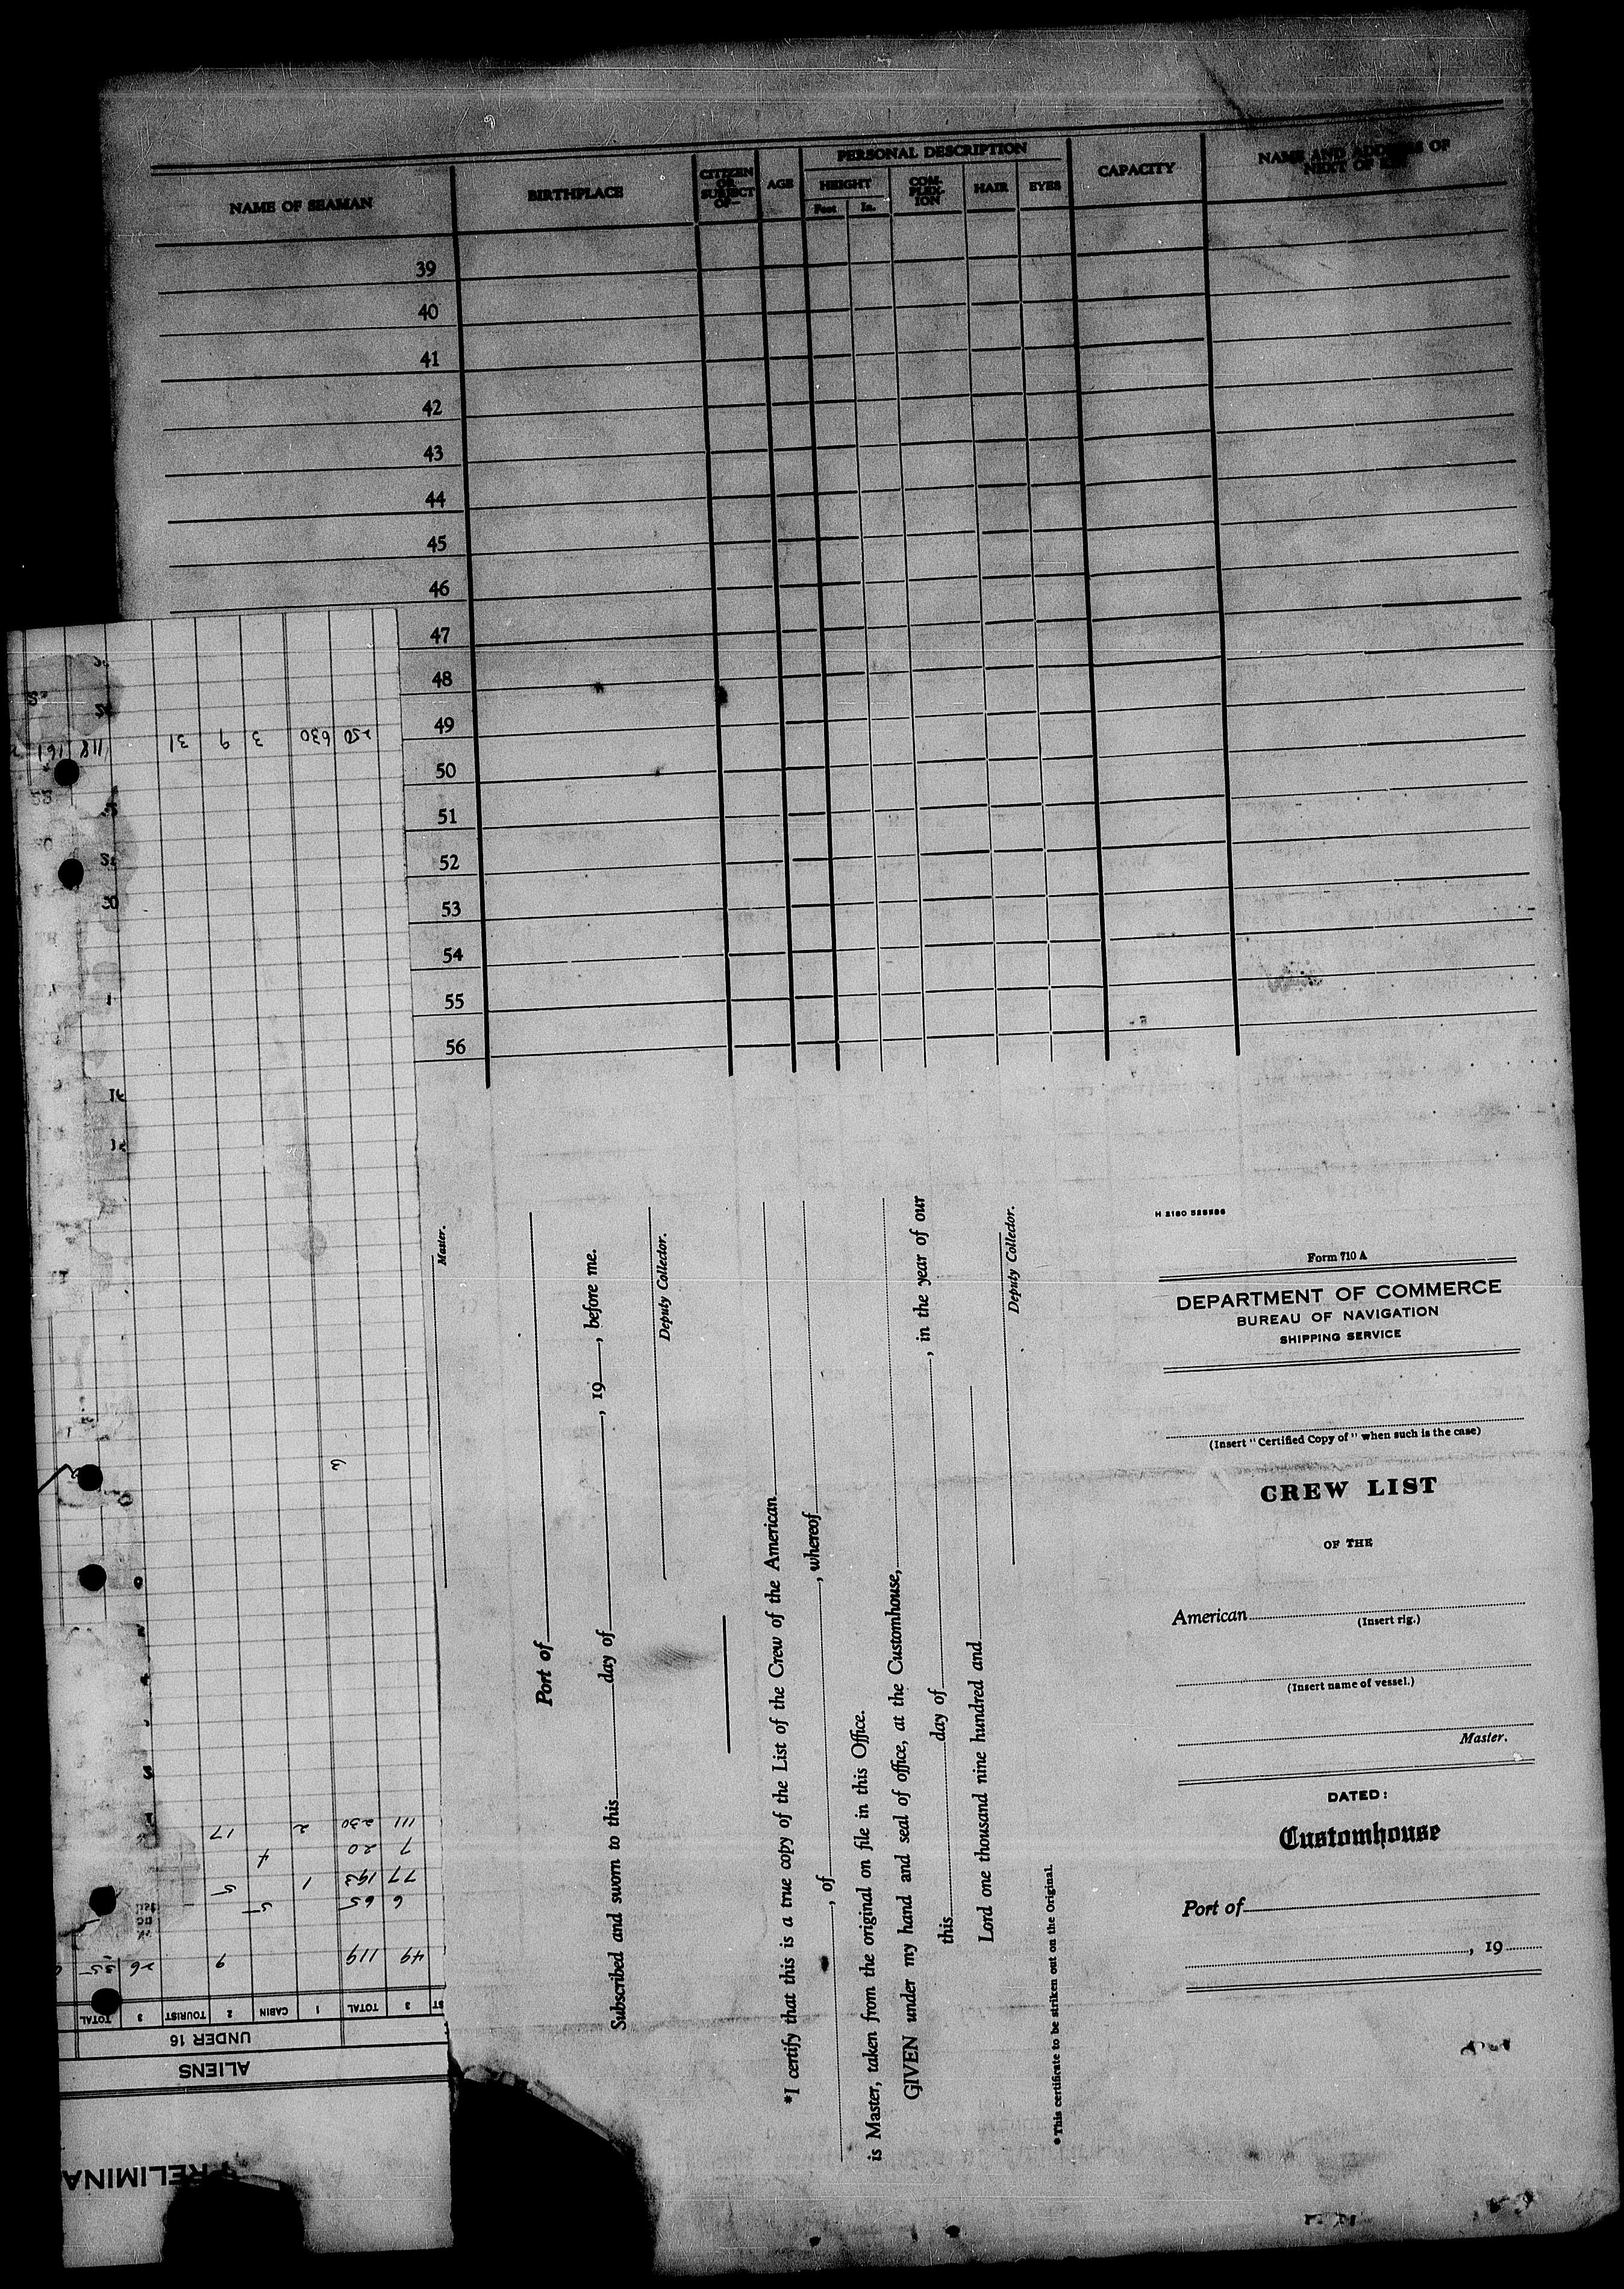 PERSONAL DESCRIPTION
NAME OF SEAMAN
BIRTHPLACE
CITIZEN OR SUBJECT OF—
AGE
HEIGHT
Feet
In.
COM-PLEX-ION
HAIR
EYES
CAPACITY
NAME AND ADDRESS OF
NEXT OF
39
40
41
42
43
44
45
46
47
48
49
50
51
52
53
54
55
56
Master.
Port of
Subscribed and sworn to this day of , 19 , before me.
Deputy Collector.
*I certify that this is a true copy of the List of the Crew of the American
, of , whereof
is Master, taken from the original on file in this Office.
GIVEN under my hand and seal of office, at the Customhouse,
this day of , in the year of our
Lord one thousand nine hundred and
Deputy Collector.
*This certificate to be striken out on the Original.
Form 710 A
DEPARTMENT OF COMMERCE
BUREAU OF NAVIGATION
SHIPPING SERVICE
(Insert "Certified Copy of" when such is the case)
CREW LIST
OF THE
American
(Insert rig.)
(Insert name of vessel.)
Master.
DATED:
Customhouse
Port of
, 19
PRELIMINA
ALIENS
UNDER 16
ST 3 TOTAL 1 CABIN 2 TOURIST 3 TOTAL
49 119 9 26 35
6 65 5
77 193 1 5
7 20 4
111 230 2 17
250 630 3 9 31 118 161